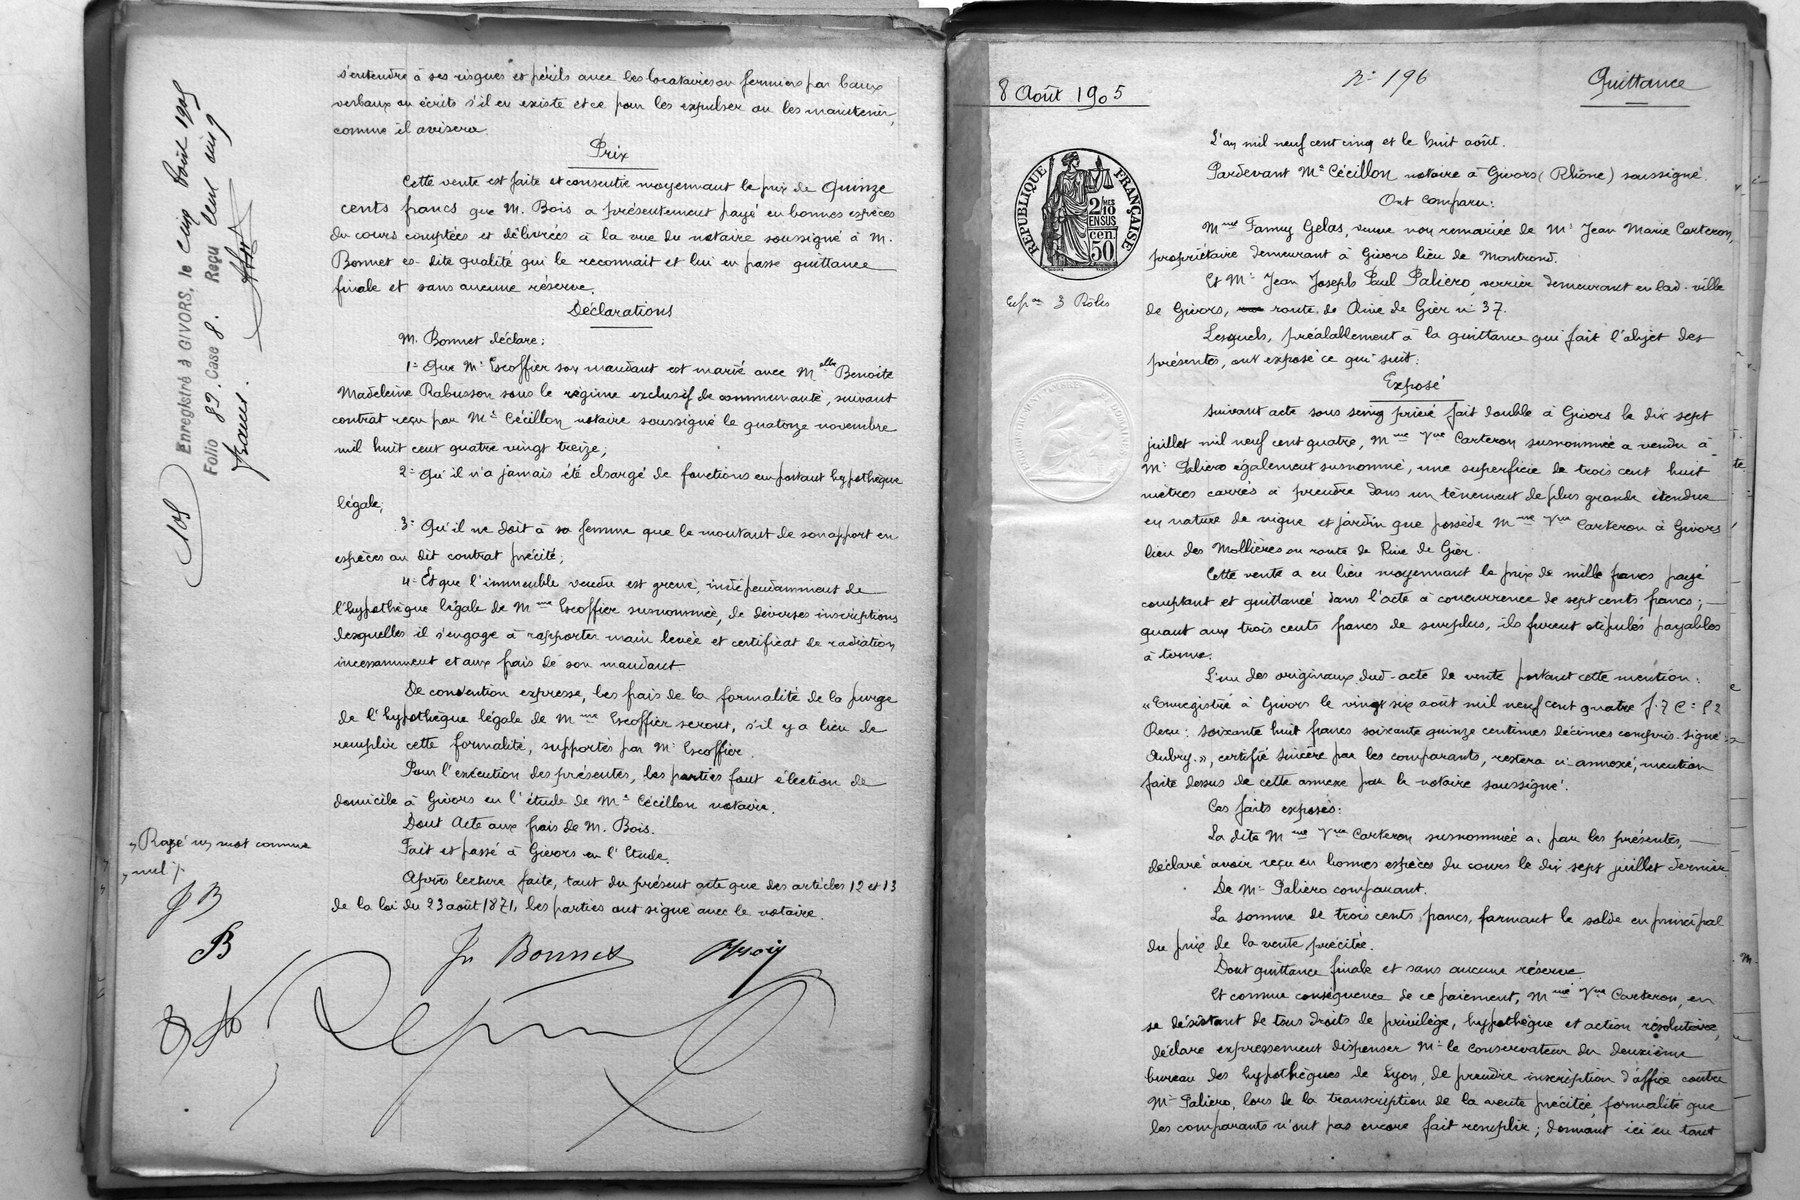 s'entendre à ses risques et périls avec les locataires ou fermiers par baux
verbaux ou écrits s'il en existe et ce pour les expulser ou les maintenir,
comme il avisera.
Prix
Cette vente est faite et consentie moyennant le prix de Quinze
cents francs que M. Bois a présentement payé en bonnes espèces
du cours comptées et délivrées à la vue du notaire soussigné à M.
Bonnet es-dite qualité qui le reconnait et lui en passe quittance
finale et sans aucune réserve.
Déclarations
M. Bonnet déclare:
1º Que Mr Escoffier son mandant est marié avec Melle Benoite
Madeleine Rabusson sous le régime exclusif de communauté, suivant
contrat reçu par Me Cécillon notaire soussigné le quatorze novembre
mil huit cent quatre vingt treize;
2º Qu'il n'a jamais été chargé de fonctions emportant hypothèque
légale;
3º Qu'il ne doit à sa femme que le montant de son apport en
espèces au dit contrat précité;
4º Et que l'immeuble vendu est grevé, indépendamment de
l'hypothèque légale de Mme Escoffier susnommée, de diverses inscriptions
desquelles il s'engage à rapporter main levée et certificat de radiation
incessamment et aux frais de son mandant
De convention expresse, les frais de la formalité de la purge
de l'hypothèque légale de Mme Escoffier seront, s'il y a lieu de
remplir cette formalité, supportés par Mr Escoffier.
Pour l'exécution des présentes, les parties font élection de
domicile à Givors en l'étude de Me Cécillon notaire.
Dont Acte aux frais de M. Bois.
Fait et passé à Givors en l'Etude.
Après lecture faite, tant du présent acte que des articles 12 et 13
de la loi du 23 août 1871, les parties ont signé avec le notaire.
Jn Bonnet
Enregistré à GIVORS, le cinq août 1905
Folio 89. Case 8. Reçu cent cinq
francs.
Rayé un mot comme
nul
J B
B
8 Août 1905
Nº 196
Quittance
RÉPUBLIQUE FRANÇAISE
2/10MES
EN SUS
cen.
50
Exp on 3 Rôles
L'an mil neuf cent cinq et le huit août.
Pardevant Me Cécillon notaire à Givors (Rhône) soussigné.
Ont comparu:
Mme Fanny Gelas, veuve non remariée de Mr Jean Marie Carteron,
propriétaire demeurant à Givors lieu de Montrond.
Et Mr Jean Joseph Paul Paliero, verrier demeurant en lad. ville
de Givors, route de Rive de Gier nº 37.
Lesquels, préalablement à la quittance qui fait l'objet des
présentes, ont exposé ce qui suit:
Exposé
Suivant acte sous seing privé fait double à Givors le dix sept
juillet mil neuf cent quatre, Mme Vve Carteron susnommée a vendu à
Mr Paliero également susnommé, une superficie de trois cent huit
mètres carrés à prendre dans un tènement de plus grande étendue
en nature de vigne et jardin que possède Mme Vve Carteron à Givors
lieu des Mollières ou route de Rive de Gier.
Cette vente a eu lieu moyennant le prix de mille francs payé
comptant et quittancé dans l'acte à concurrence de sept cents francs;
quant aux trois cents francs de surplus, ils furent stipulés payables
à terme.
L'un des originaux dud. acte de vente portant cette mention:
«Enregistré à Givors le vingt six août mil neuf cent quatre f. 7 C. 52
Reçu: soixante huit francs soixante quinze centimes décimes compris. signé:
Aubry.», certifié sincère par les comparants, restera ci-annexé, mention
faite dessus de cette annexe par le notaire soussigné.
Ces faits exposés:
La dite Mme Vve Carteron susnommée a, par les présentes,
déclaré avoir reçu en bonnes espèces du cours le dix sept juillet dernier
De Mr Paliero comparant.
La somme de trois cents francs, formant le solde en principal
du prix de la vente précitée.
Dont quittance finale et sans aucune réserve.
Et comme conséquence de ce paiement, Mme Vve Carteron, en
se désistant de tous droits de privilège, hypothèque et action résolutoire,
déclare expressément dispenser Mr le conservateur du deuxième
bureau des hypothèques de Lyon, de prendre inscription d'office contre
Mr Paliero, lors de la transcription de la vente précitée, formalité que
les comparants n'ont pas encore fait remplir; donnant ici en tant